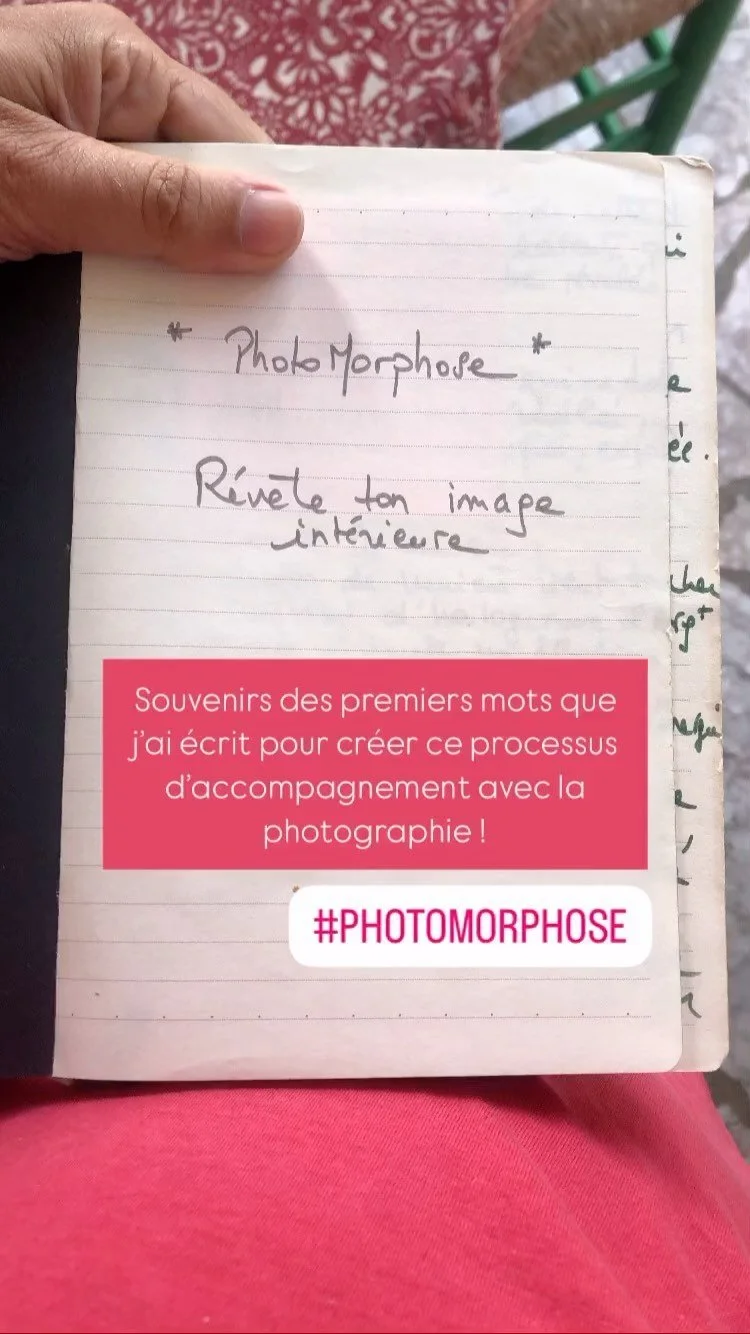 * PhotoMorphose *
Révèle ton image
intérieure
Souvenirs des premiers mots que
j'ai écrit pour créer ce processus
d'accompagnement avec la
photographie !
#PHOTOMORPHOSE